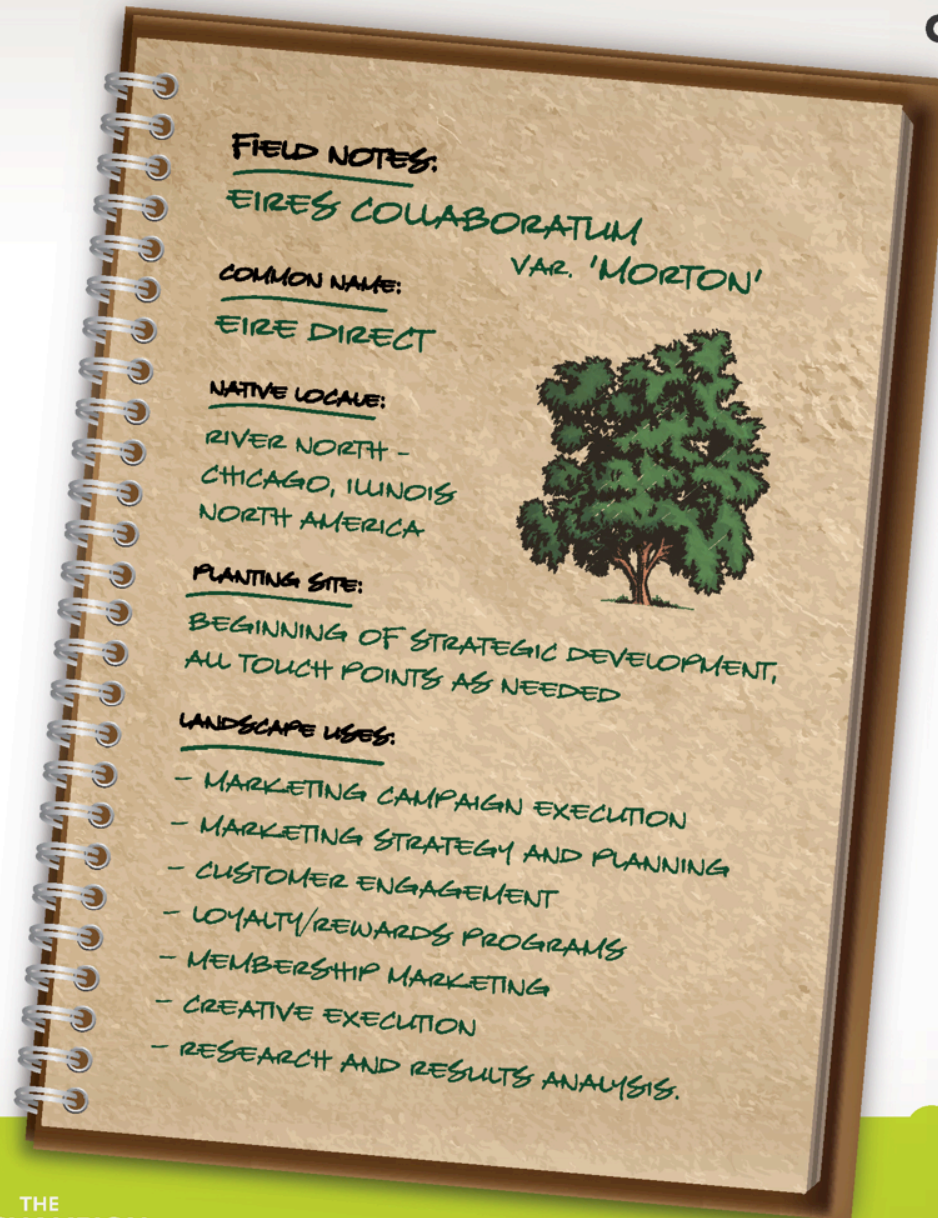 FIELD NOTES:
EIRES COLLABORATUM
VAR. 'MORTON'
COMMON NAME:
EIRE DIRECT
NATIVE LOCALE:
RIVER NORTH –
CHICAGO, ILLINOIS
NORTH AMERICA
PLANTING SITE:
BEGINNING OF STRATEGIC DEVELOPMENT,
ALL TOUCH POINTS AS NEEDED
LANDSCAPE USES:
– MARKETING CAMPAIGN EXECUTION
– MARKETING STRATEGY AND PLANNING
– CUSTOMER ENGAGEMENT
– LOYALTY/REWARDS PROGRAMS
– MEMBERSHIP MARKETING
– CREATIVE EXECUTION
– RESEARCH AND RESULTS ANALYSIS.
THE